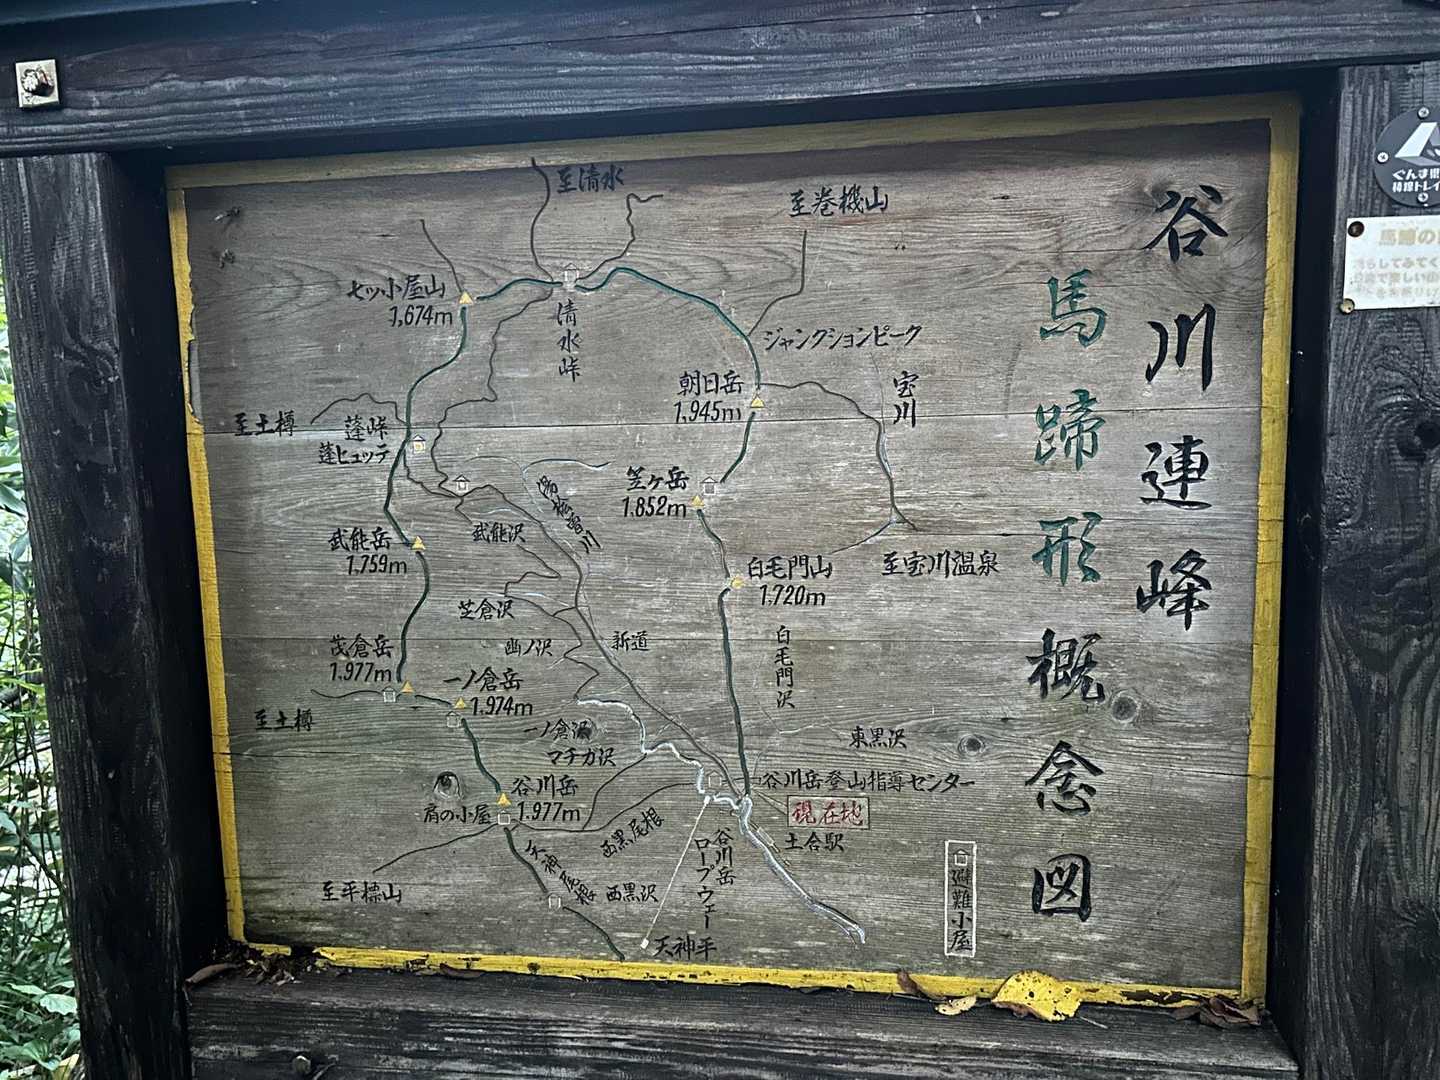 谷川連峰
馬蹄形概念図
至清水
至巻機山
七ッ小屋山
1,674m
清水峠
ジャンクションピーク
朝日岳
1,945m
宝川
至土樽
蓬峠
蓬ヒュッテ
笠ヶ岳
1.852m
湯桧曽川
武能沢
武能岳
1,759m
白毛門山
1.720m
至宝川温泉
芝倉沢
幽ノ沢
新道
白毛門沢
茂倉岳
1.977m
一ノ倉岳
1.974m
至土樽
一ノ倉沢
マチガ沢
東黒沢
谷川岳
1.977m
肩の小屋
谷川岳登山指導センター
現在地
土合駅
西黒尾根
谷川岳
ロープウェー
天神尾根
西黒沢
至平標山
天神平
避難小屋
ぐんま県
稜線トレイ